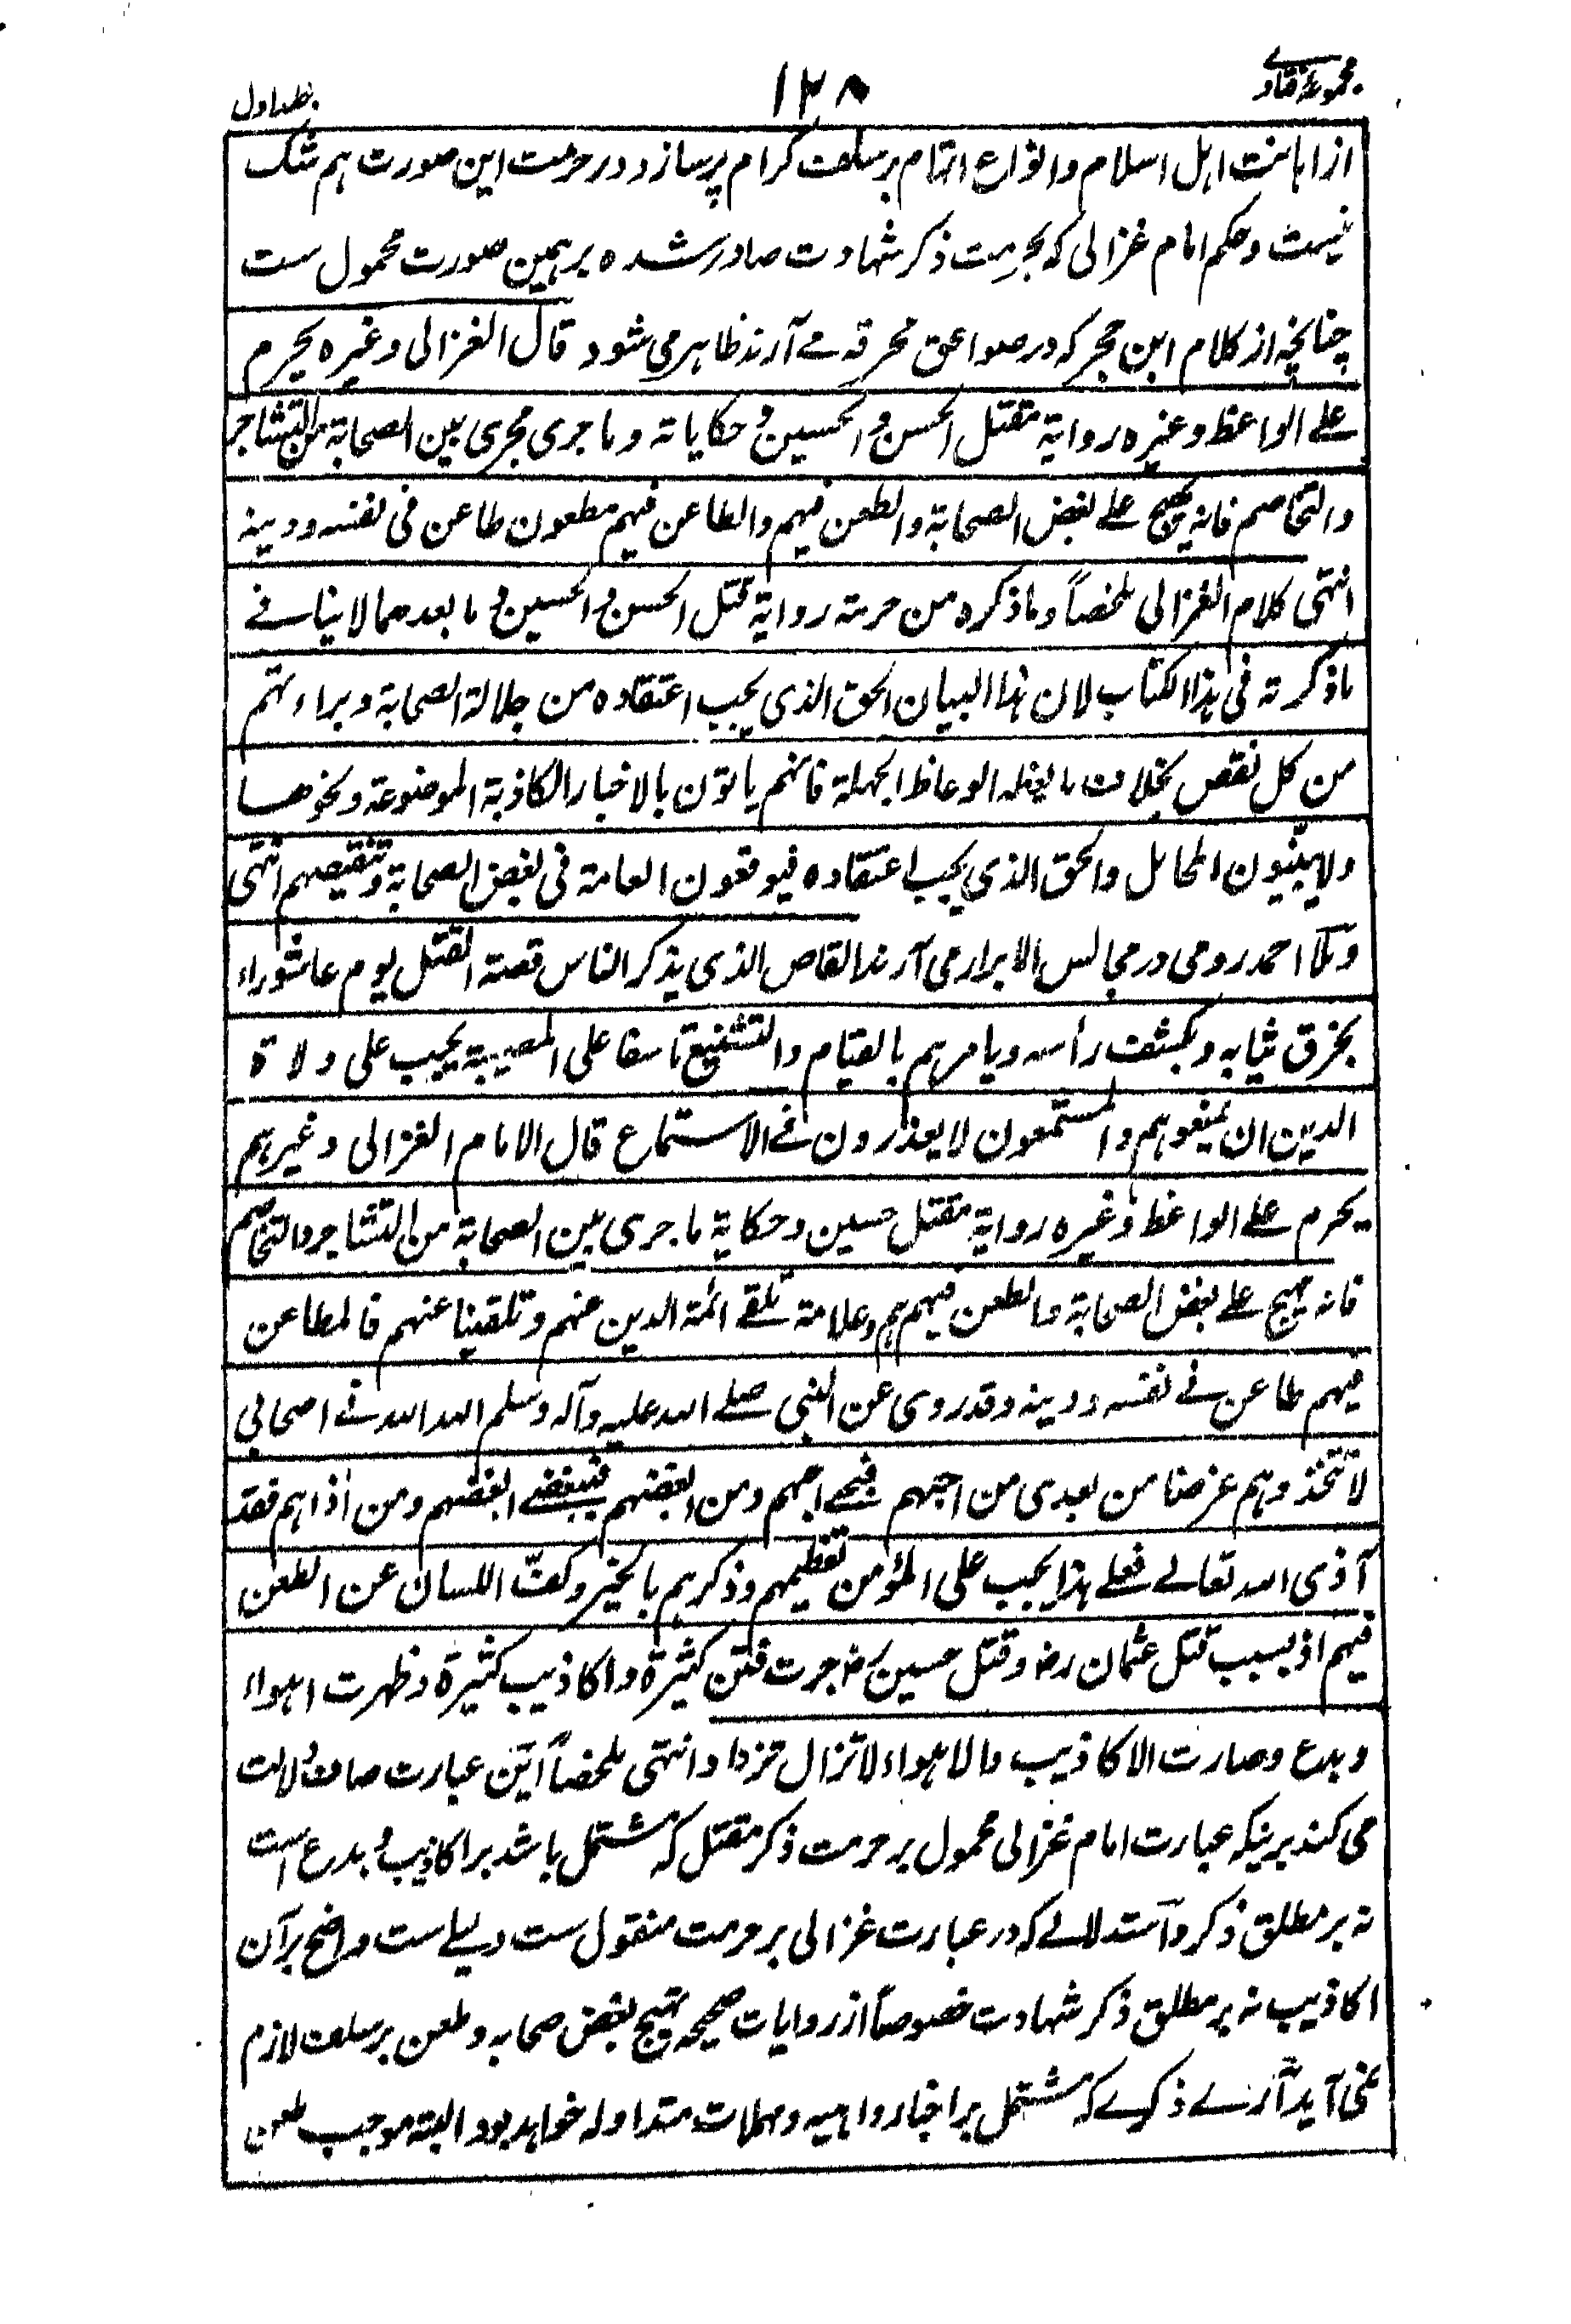 مجموعۂ فتاوے
۱۲۸
جلد اول
از اہانت اہل اسلام و انواع اتہام بر سلف کرام پر سازد در حرمت این صورت ہم شک
نیست و حکم امام غزالی کہ بحرمت ذکر شہادت صادر شدہ بر ہمین صورت محمول ست
چنانچہ از کلام ابن حجر کہ در صواعق محرقہ مے آرند ظاہر می شود قال الغزالی وغیرہ یحرم
علے الواعظ وغیرہ روایۃ مقتل الحسن والحسین و حکایاتہ وما جری مجری بین الصحابۃ من التشاجر
والتخاصم فانہ یہیج علے بغض الصحابۃ والطعن فیہم والطاعن فیہم مطعون طاعن فی نفسہ ودینہ
انتہی کلام الغزالی ملخصاً وما ذکرہ من حرمتہ روایۃ قتل الحسن والحسین وما بعدھما لا ینافے
ماذکرتہ فی ہذا الکتاب لان ہذا البیان الحق الذی یجب اعتقادہ من جلالۃ الصحابۃ وبراءتہم
من کل نقص بخلاف ما یفعلہ الوعاظ الجہلۃ فانہم یاتون بالاخبار الکاذبۃ الموضوعۃ ونحوھا
ولا یبینون المحامل والحق الذی یجب اعتقادہ فیوقعون العامۃ فی بغض الصحابۃ وتنقیصہم انتہی
وملا احمد رومی در مجالس الابرار می آرند القاص الذی یذکر الناس قصۃ القتل یوم عاشوراء
بخرق ثیابہ وکشف رأسہ ویامرہم بالقیام والتشنیع تاسفا علی المصیبۃ یجب علی ولاۃ
الدین ان یمنعوہم والمستمعون لا یعذرون فے الاستماع قال الامام الغزالی وغیرہم
یحرم علے الواعظ وغیرہ روایۃ مقتل حسین وحکایۃ ما جری بین الصحابۃ من التشاجر والتخاصم
فانہ یہیج علے بغض الصحابۃ والطعن فیہم ہم وعلامۃ تلقے ائمۃ الدین عنہم وتلقینا عنہم فالمطاعن
فیہم طاعن فے نفسہ ودینہ وقد روی عن النبی صلے اللہ علیہ وآلہ وسلم اللہ اللہ فے اصحابی
لا تتخذوہم غرضا من بعدی من احبہم فبحبے احبہم ومن ابغضہم فببغضے ابغضہم ومن اٰذاہم فقد
آذی اللہ تعالے فعلے ہذا یجب علی المؤمن تعظیمہم وذکرہم بالخیر وکفّ اللسان عن الطعن
فیہم اذ بسبب قتل عثمان رض وقتل حسین رض جرت فتن کثیرۃ واکاذیب کثیرۃ وظہرت اہواء
وبدع وصارت الاکاذیب والاہواء لا تزال تزداد انتہی ملخصاً این عبارت صاف دلالت
می کند برینکہ عبارت امام غزالی محمول بر حرمت ذکر مقتل کہ مشتمل باشد بر اکاذیب و بدع است
نہ بر مطلق ذکر و استدلالے کہ در عبارت غزالی بر حرمت منقول ست دلیلے ست واضح بر آن
اکاذیب نہ بر مطلق ذکر شہادت خصوصاً از روایات صحیحہ تہیج بغض صحابہ و طعن بر سلف لازم
نمی آید آرے ذکرے کہ مشتمل بر اخبار واہیہ و مہملات متداولہ خواہد بود البتہ موجب طعن